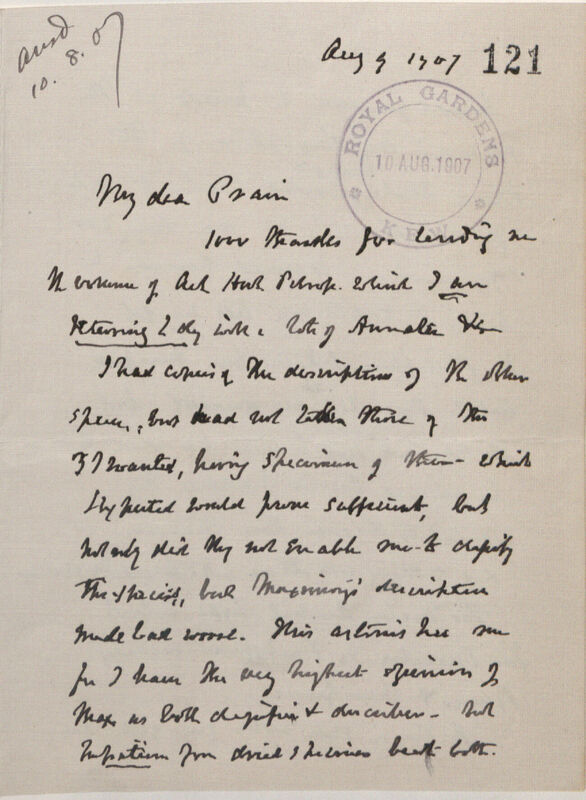 ansd
10.8.07
Aug 9 1907 121
ROYAL GARDENS
10 AUG. 1907
KEW
My dear Prain
1000 thanks for lending me
the volume of Act Hort Petrop. which I am
returning 2 day with a lot of Annales &c
I had copies of the descriptions of the other
species, but had not taken those of the
3 I wanted, having specimens of them - which
I expected would prove sufficient, but
not only did they not enable me to classify
the species, but Maximovicz' descriptions
made bad worse. This astonishes me
for I have the very highest opinion of
Max as both classifier & describer - but
Impatiens from dried specimens beat both.